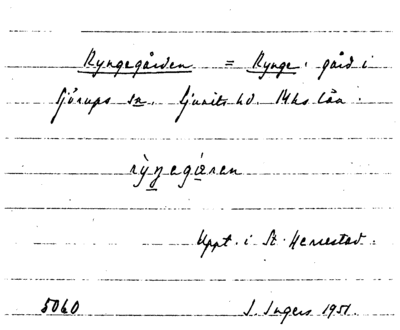 Ryngegården = Rynge, gård i
Sjörups sn. Ljunits hd. Mhs län.
rỳŋegáren
Uppt. i St. Herrestad.
5060 I. Ingers 1951.